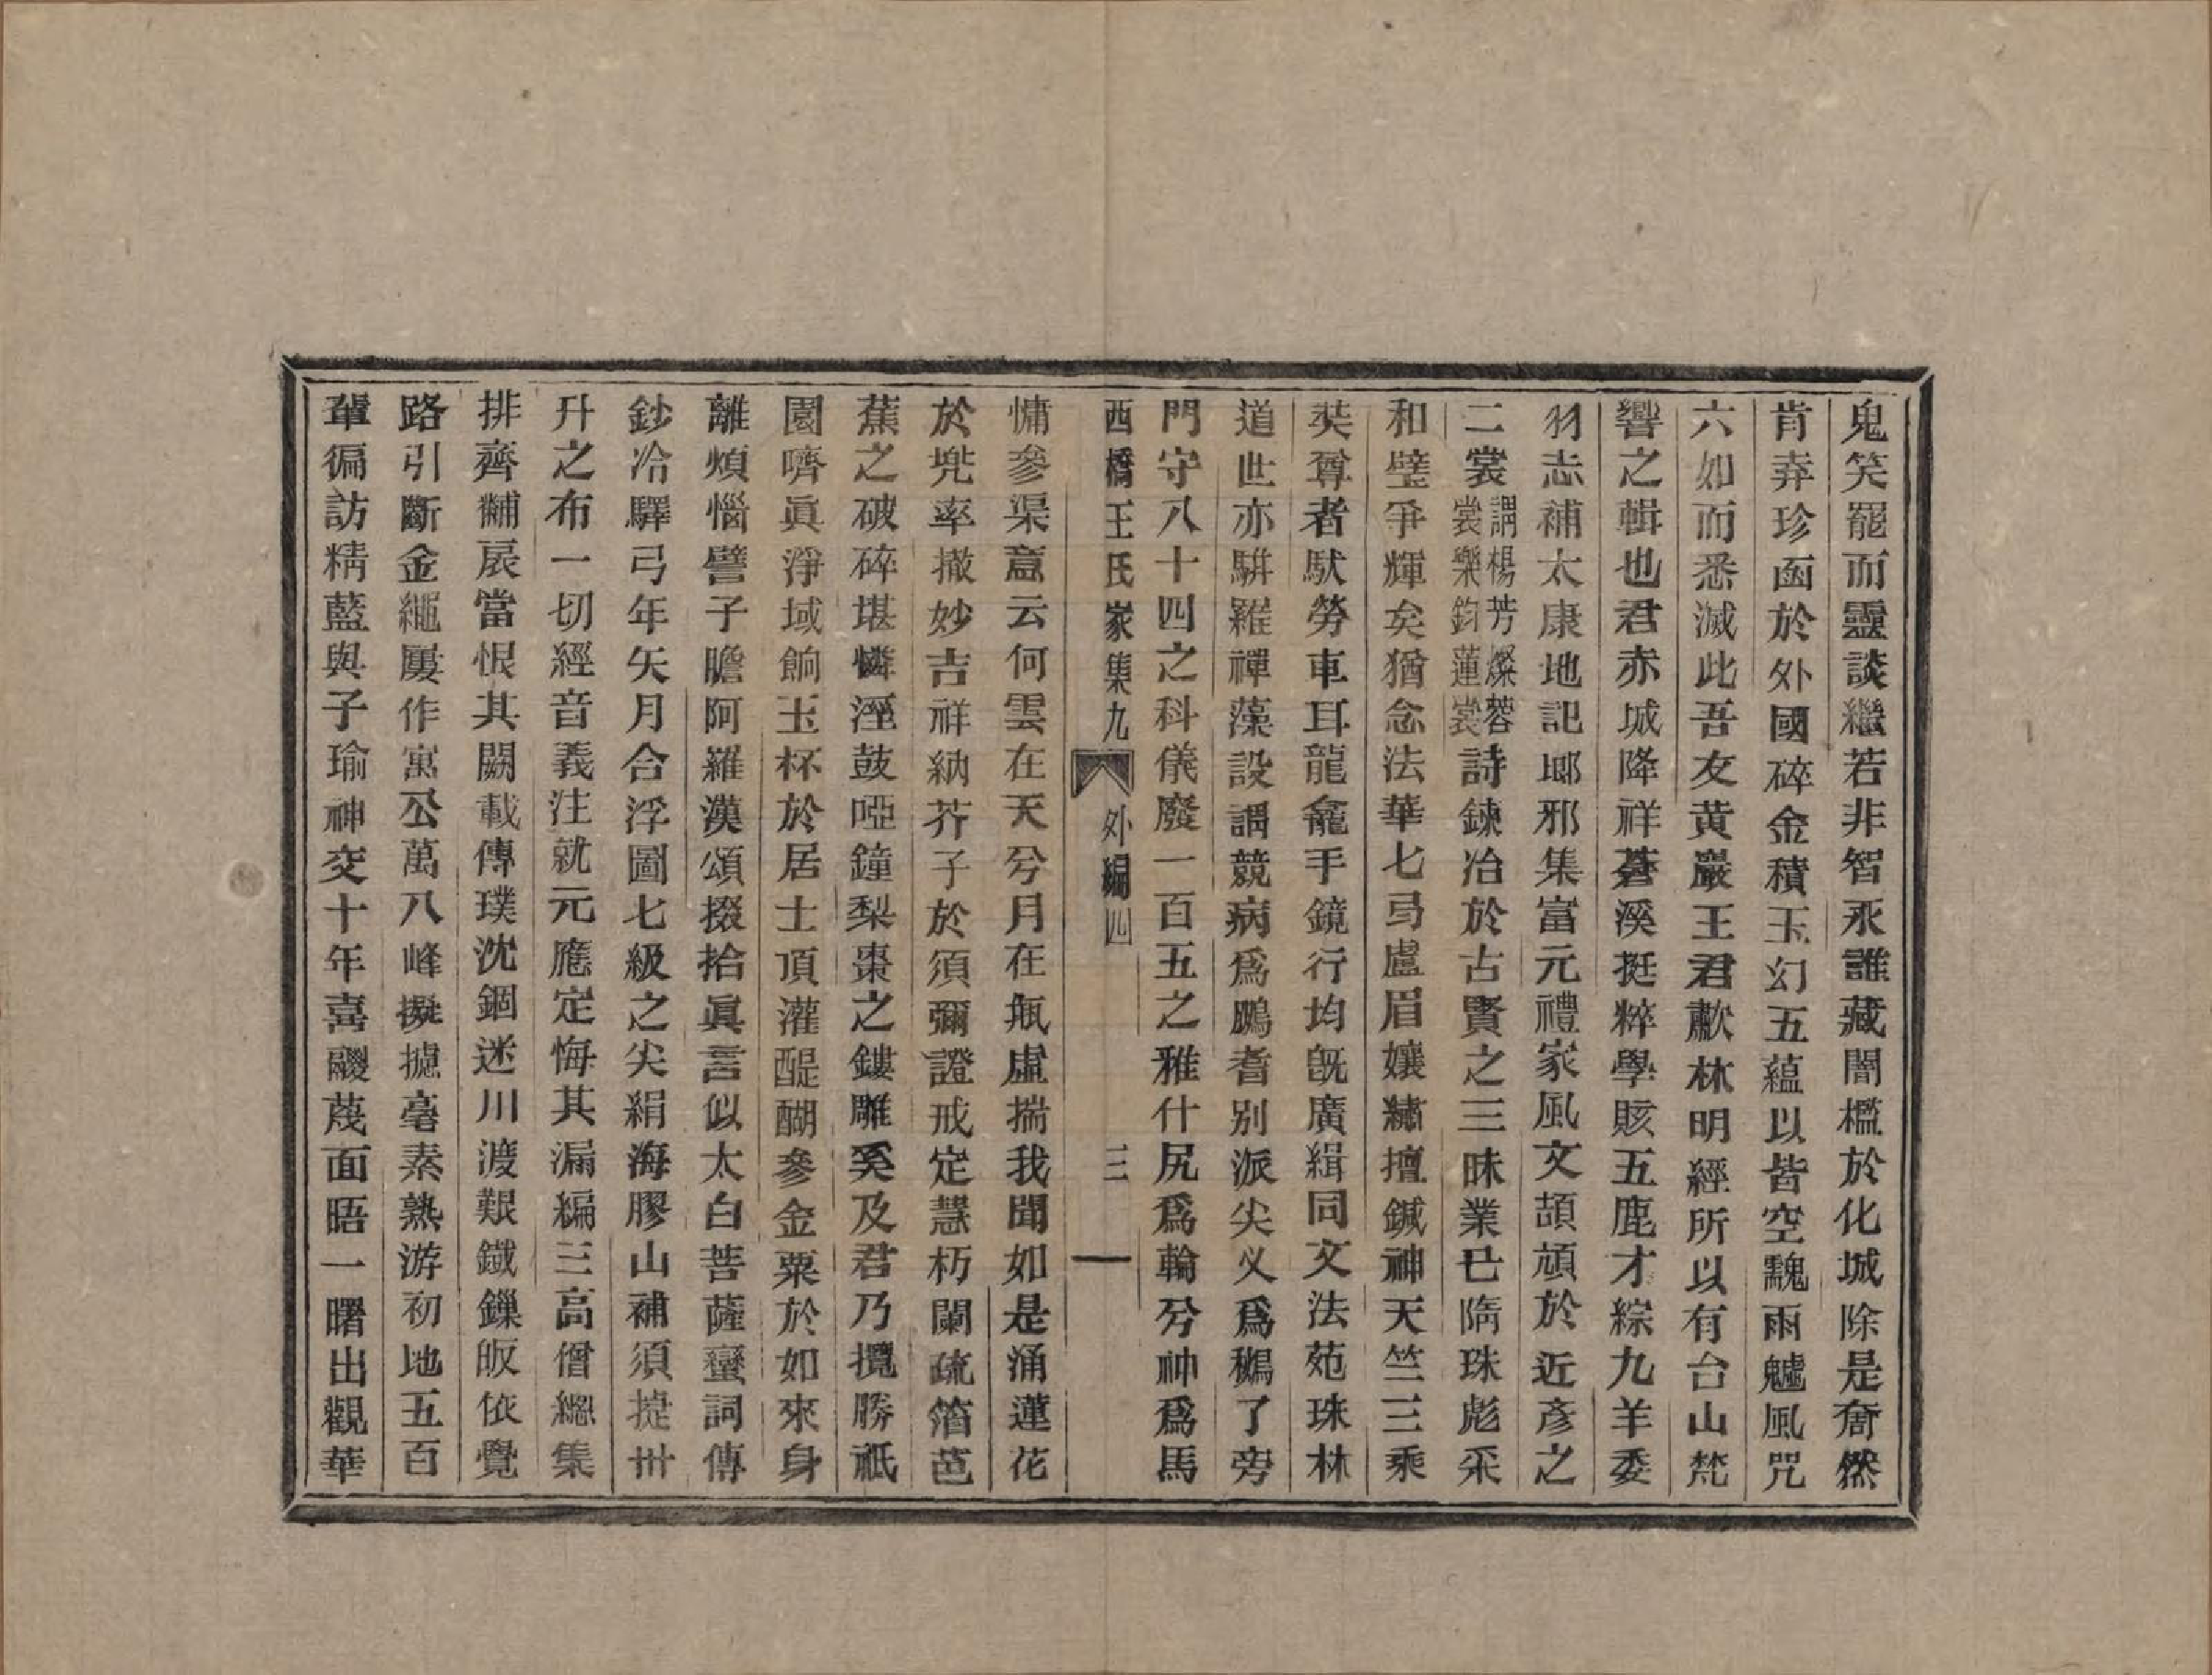 鬼笑罷而靈談繼若非智永誰藏闇檻於化城除是奝然
肯弆珍函於外國碎金積玉幻五蘊以皆空黥雨魖風咒
六如而悉滅此吾友黃巖王君歗林明經所以有台山梵
響之輯也君赤城降祥蒼溪挺粹學賅五鹿才綜九羊委
羽志補太康地記瑯邪集富元禮家風文頡頏於近彥之
二裳謂楊芳燦蓉裳樂鈞蓮裳詩鍊冶於古賢之三昧業已隋珠彪采
和璧爭輝矣猶念法華七弓盧眉孃繡擅鍼神天竺三乘
奘尊者馱勞車耳龍龕手鏡行均旣廣緝同文法苑珠林
道世亦駢羅禪藻設謂競病爲鵬耆別派尖义爲鵷了旁
門守八十四之科儀廢一百五之雅什尻爲輪兮神爲馬
西橋王氏家集九 外編四 三
慵參渠意云何雲在天兮月在甁虛揣我聞如是涌蓮花
於兜率撤妙吉祥納芥子於須彌證戒定慧杇闌疏箔芭
蕉之破碎堪憐溼鼓啞鐘梨棗之鏤雕奚及君乃攬勝祇
園嚌眞淨域餉玉杯於居士頂灌醍醐參金粟於如來身
離煩惱譬子瞻阿羅漢頌掇拾眞言似太白菩薩蠻詞傳
鈔冷驛弓年矢月合浮圖七級之尖絹海膠山補須提卅
升之布一切經音義注就元應定悔其漏編三高僧總集
排齊黼扆當恨其闕載傳璞沈錮迷川渡艱鐵鏁皈依覺
路引斷金繩屢作寓公萬八峰擬攄毫素熟游初地五百
羣徧訪精藍與子瑜神交十年喜翪蔑面晤一曙出觀華